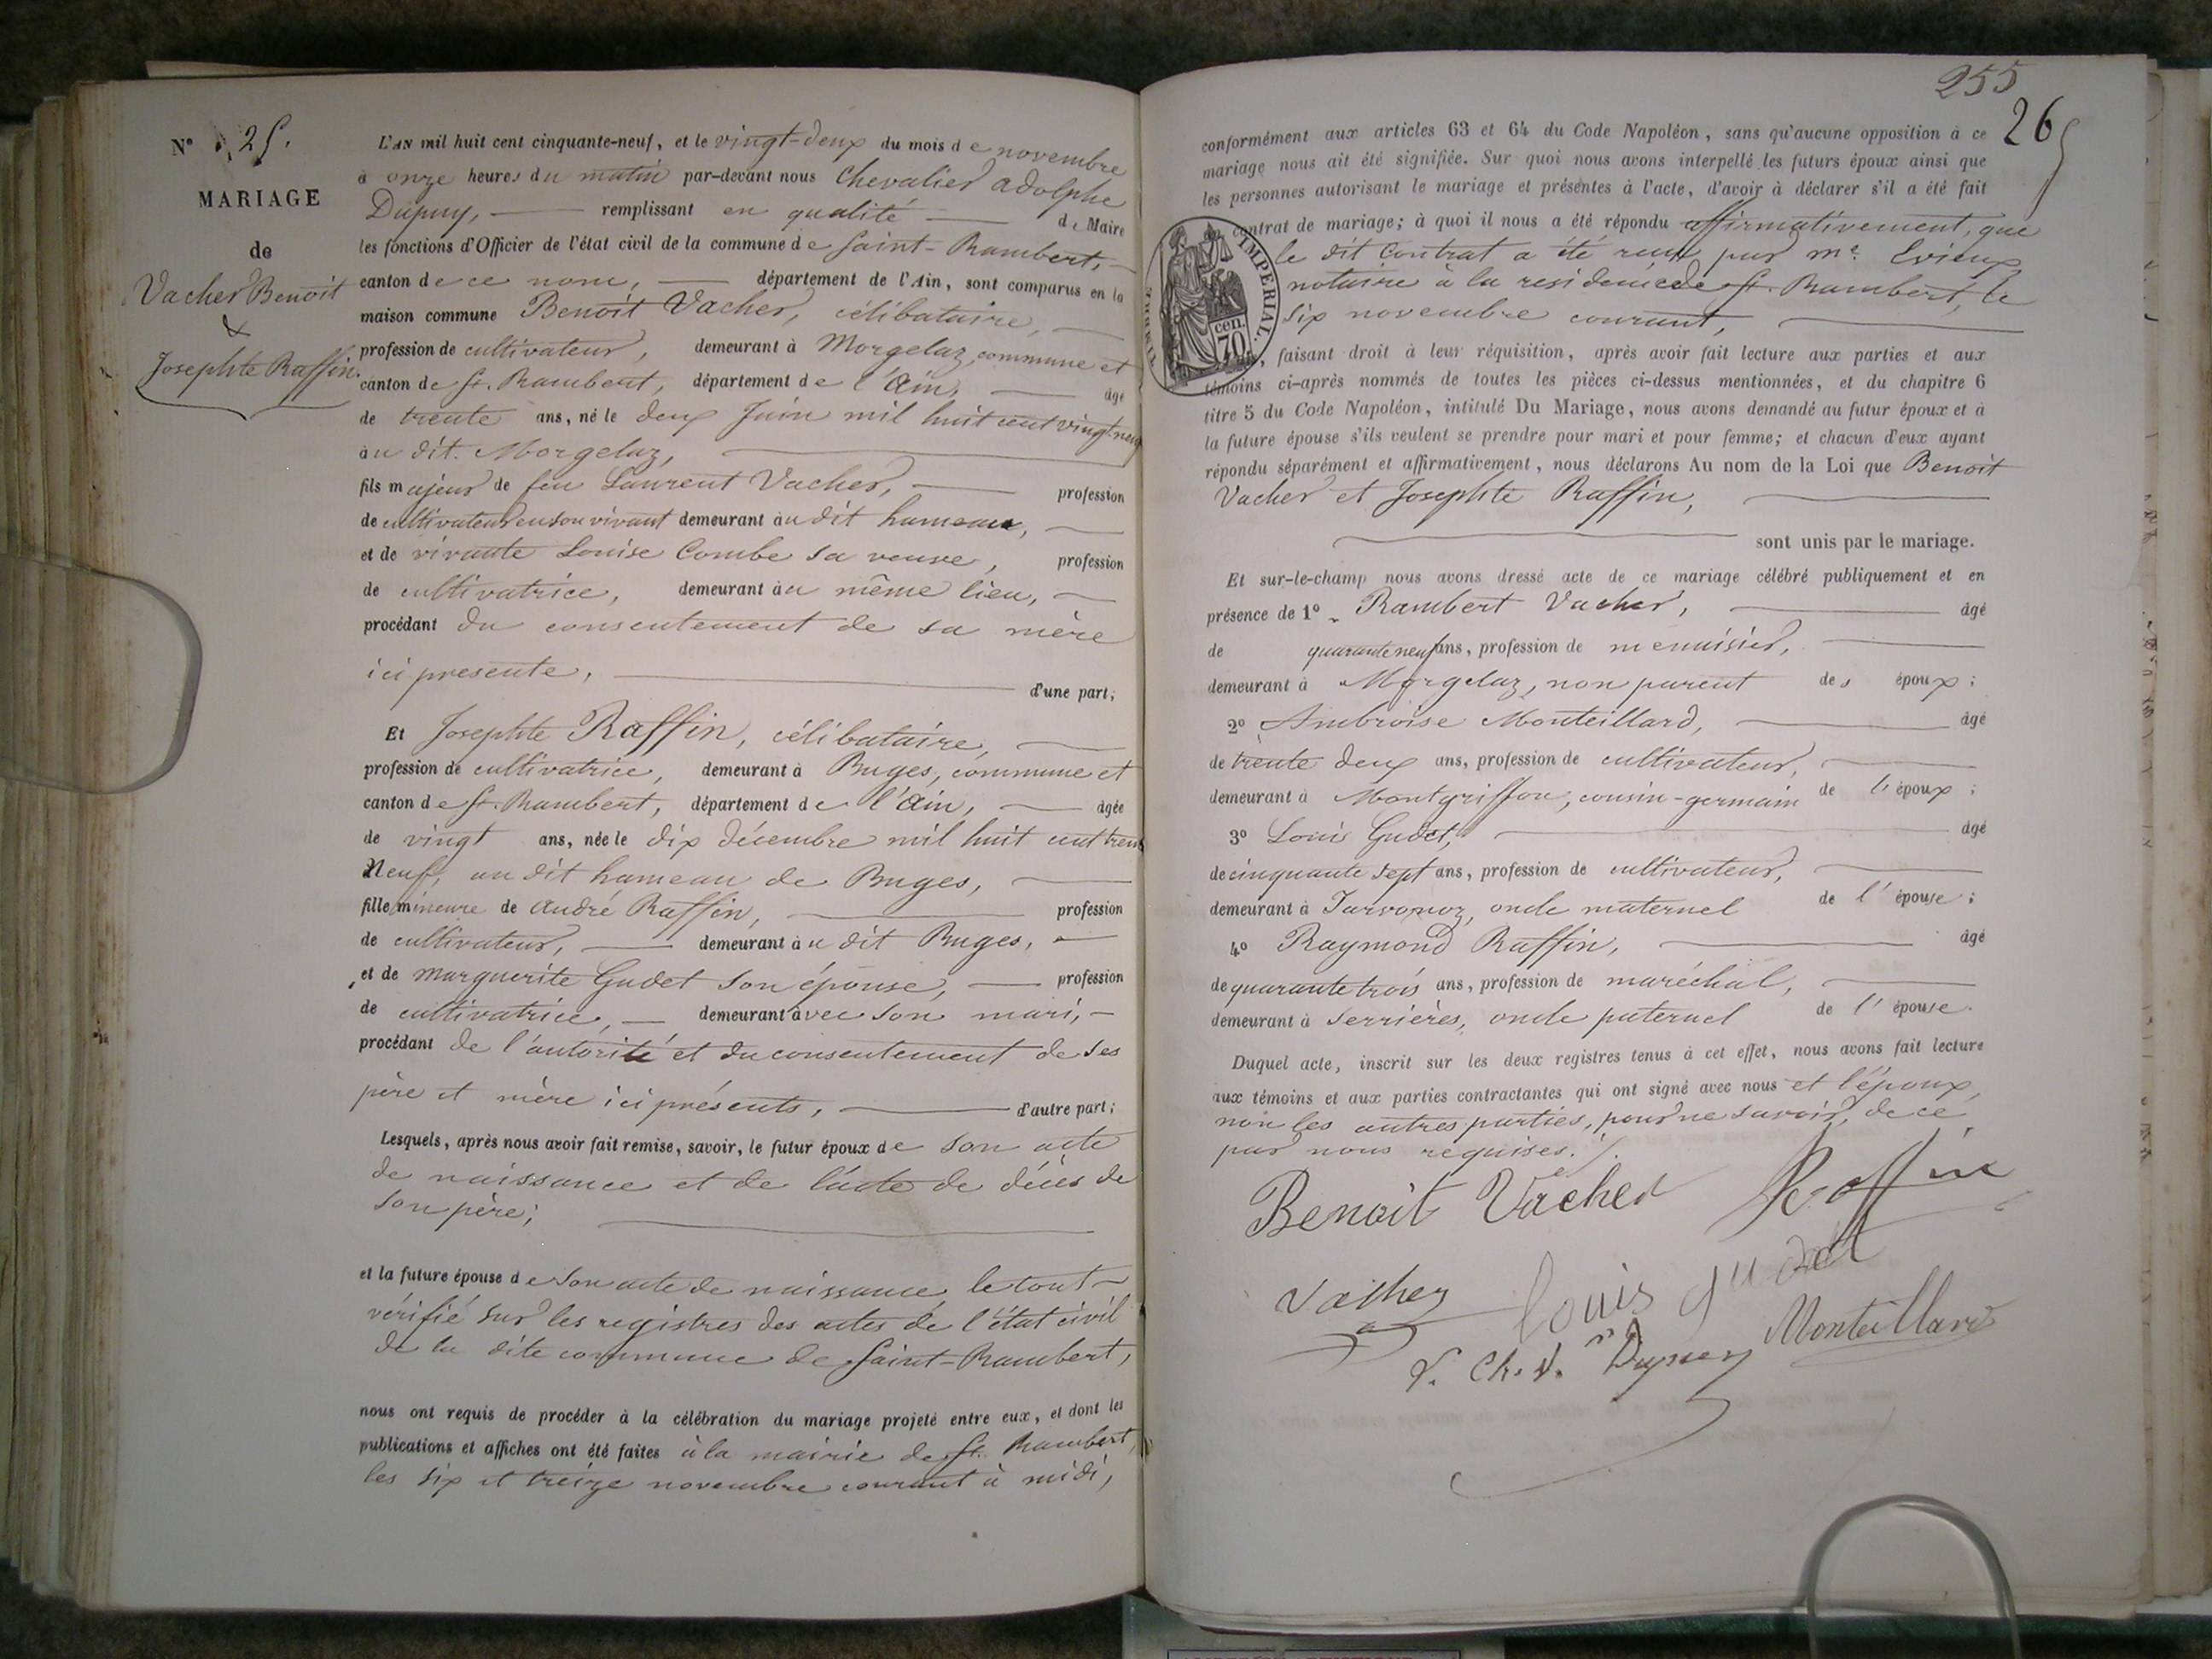 N° 25.
MARIAGE
de
Vacher Benoit
&
Josephte Raffin.
L'AN mil huit cent cinquante-neuf, et le vingt-deux du mois de novembre
à onze heures du matin par-devant nous Chevalier Adolphe
Dupuy, remplissant en qualité de Maire
les fonctions d'Officier de l'état civil de la commune de Saint-Rambert,
canton de ce nom, département de l'Ain, sont comparus en la
maison commune Benoit Vacher, célibataire,
profession de cultivateur, demeurant à Morgelaz, commune et
canton de St. Rambert, département de l'Ain, âgé
de trente ans, né le deux Juin mil huit cent vingt-neuf
au dit Morgelaz,
fils majeur de feu Laurent Vacher, profession
de cultivateur en son vivant demeurant au dit hameau,
et de vivante Louise Combe sa veuve, profession
de cultivatrice, demeurant au même lieu,
procédant du consentement de sa mère
ici presente, d'une part;
Et Josephte Raffin, célibataire,
profession de cultivatrice, demeurant à Buges, commune et
canton de St. Rambert, département de l'Ain, âgée
de vingt ans, née le dix décembre mil huit cent trente
Neuf, au dit hameau de Buges,
fille mineure de André Raffin, profession
de cultivateur, demeurant au dit Buges,
et de Marguerite Gudet son épouse, profession
de cultivatrice, demeurant avec son mari,
procédant de l'autorité et du consentement de ses
père et mère ici présents, d'autre part;
Lesquels, après nous avoir fait remise, savoir, le futur époux de son acte
de naissance et de l'acte de décès de
son père;
et la future épouse de son acte de naissance, le tout
vérifié sur les registres des actes de l'état civil
de la dite commune de Saint-Rambert,
nous ont requis de procéder à la célébration du mariage projeté entre eux, et dont les
publications et affiches ont été faites à la mairie de St. Rambert,
les six et treize novembre courant à midi,
255
26
conformément aux articles 63 et 64 du Code Napoléon, sans qu'aucune opposition à ce
mariage nous ait été signifiée. Sur quoi nous avons interpellé les futurs époux ainsi que
les personnes autorisant le mariage et présentes à l'acte, d'avoir à déclarer s'il a été fait
contrat de mariage; à quoi il nous a été répondu affirmativement, que
le dit contrat a été reçu par Me. Evieux
notaire à la residence de St. Rambert, le
six novembre courant,
TIMBRE IMPERIAL.
70 cen.
faisant droit à leur réquisition, après avoir fait lecture aux parties et aux
témoins ci-après nommés de toutes les pièces ci-dessus mentionnées, et du chapitre 6
titre 5 du Code Napoléon, intitulé Du Mariage, nous avons demandé au futur époux et à
la future épouse s'ils veulent se prendre pour mari et pour femme; et chacun d'eux ayant
répondu séparément et affirmativement, nous déclarons Au nom de la Loi que Benoit
Vacher et Josephte Raffin,
sont unis par le mariage.
Et sur-le-champ nous avons dressé acte de ce mariage célébré publiquement et en
présence de 1° Rambert Vacher, âgé
de quarante neuf ans, profession de menuisier,
demeurant à Morgelaz, non parent des époux;
2° Ambroise Monteillard, âgé
de trente deux ans, profession de cultivateur,
demeurant à Montgriffon, cousin-germain de l'époux;
3° Louis Gudet, âgé
de cinquante sept ans, profession de cultivateur,
demeurant à oncle maternel de l'épouse;
4° Raymond Raffin, âgé
de quarante trois ans, profession de maréchal,
demeurant à Serrières, oncle paternel de l'épouse.
Duquel acte, inscrit sur les deux registres tenus à cet effet, nous avons fait lecture
aux témoins et aux parties contractantes qui ont signé avec nous et l'époux,
non les autres parties, pour ne savoir, de ce
par nous requises.
Benoit Vacher Raffin
Vacher Louis gudet
Monteillard
Dupuy